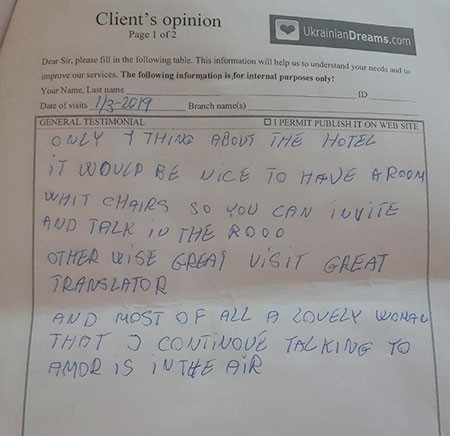 Client's opinion
Page 1 of 2
UkrainianDreams.com
Dear Sir, please fill in the following table. This information will help us to understand your needs and to
improve our services. The following information is for internal purposes only!
Your Name, Last name ID
Date of visits 1/3-2019 Branch name(s)
GENERAL TESTIMONIAL ☐ I PERMIT PUBLISH IT ON WEB SITE
ONLY 1 THING ABOUT THE HOTEL
iT WOULD BE NICE TO HAVE A ROOM
WHIT CHAIRS SO YOU CAN iNViTE
AND TALK IN THE ROOO
OTHER WISE GREAT VISIT GREAT
TRANSLATOR
AND MOST OF ALL A LOVELY WOMAN
THAT I CONTINOUE TALKING TO
AMOR IS IN THE AIR